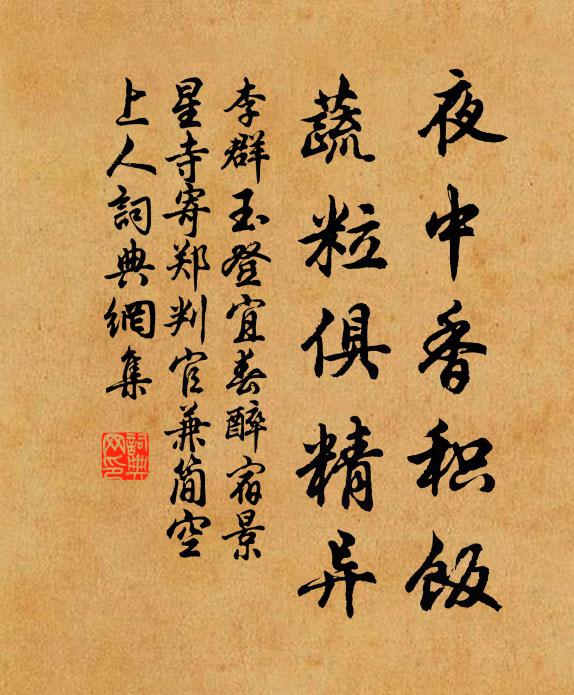 夜中香积飯
蔬粒俱精异
李群玉登宜春醉宿景
星寺寄郑判官兼简空
上人詞典網集
詞典網印